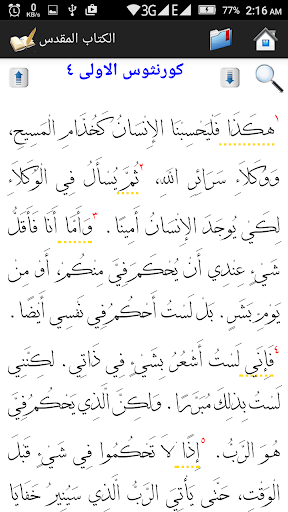 3G 71% 2:16 AM
الكتاب المقدس
كورنثوس الاولى ٤
١هكَذَا فَلْيَحْسِبْنَا الإِنْسَانُ كَخُدَّامِ الْمَسِيحِ،
وَوُكَلاَءِ سَرَائِرِ اللهِ، ٢ثُمَّ يُسْأَلُ فِي الْوُكَلاَءِ
لِكَيْ يُوجَدَ الإِنْسَانُ أَمِينًا. ٣وَأَمَّا أَنَا فَأَقَلُّ
شَيْءٍ عِنْدِي أَنْ يُحْكَمَ فِيَّ مِنْكُمْ، أَوْ مِنْ
يَوْمِ بَشَرٍ. بَلْ لَسْتُ أَحْكُمُ فِي نَفْسِي أَيْضًا.
٤فَإِنِّي لَسْتُ أَشْعُرُ بِشَيْءٍ فِي ذَاتِي. لكِنَّنِي
لَسْتُ بِذلِكَ مُبَرَّرًا. وَلكِنَّ الَّذِي يَحْكُمُ فِيَّ
هُوَ الرَّبُّ. ٥إِذًا لاَ تَحْكُمُوا فِي شَيْءٍ قَبْلَ
الْوَقْتِ، حَتَّى يَأْتِيَ الرَّبُّ الَّذِي سَيُنِيرُ خَفَايَا